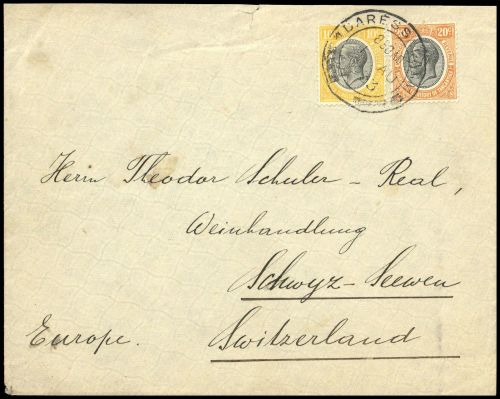 10c 10c
20c
DARESS
AU
Herrn Theodor Schuler - Real,
Weinhandlung
Schwyz-Seewen
Europe. Switzerland